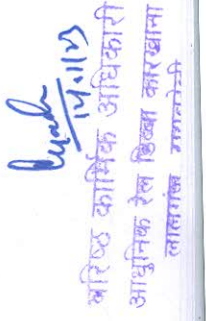 14/11/23
वरिष्ठ कार्मिक अधिकारी
आधुनिक रेल डिब्बा कारखाना
लालगंज